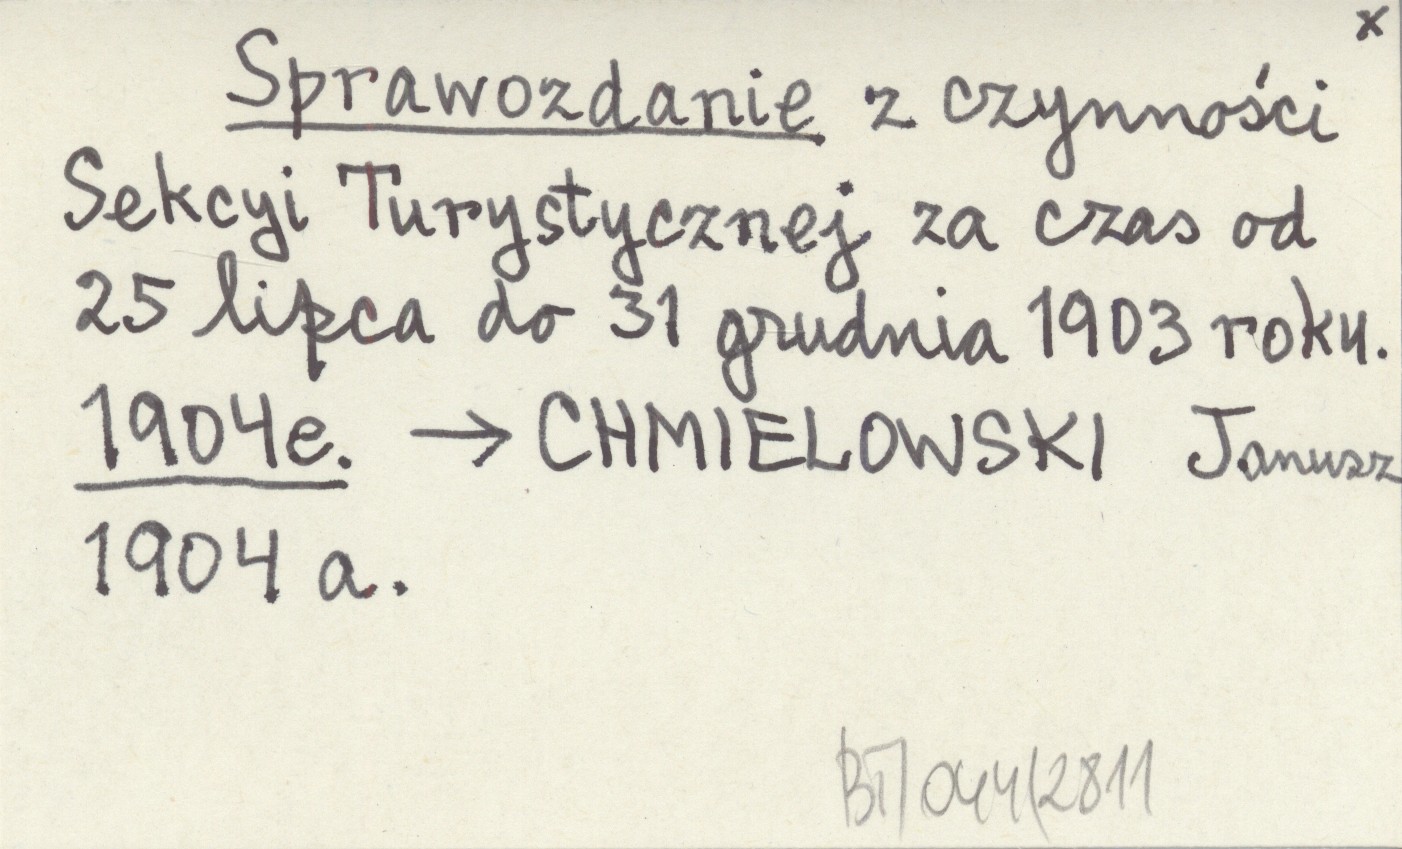 x
Sprawozdanie z czynności
Sekcyi Turystycznej za czas od
25 lipca do 31 grudnia 1903 roku.
1904e. → CHMIELOWSKI Janusz
1904 a.
BT/044/2811